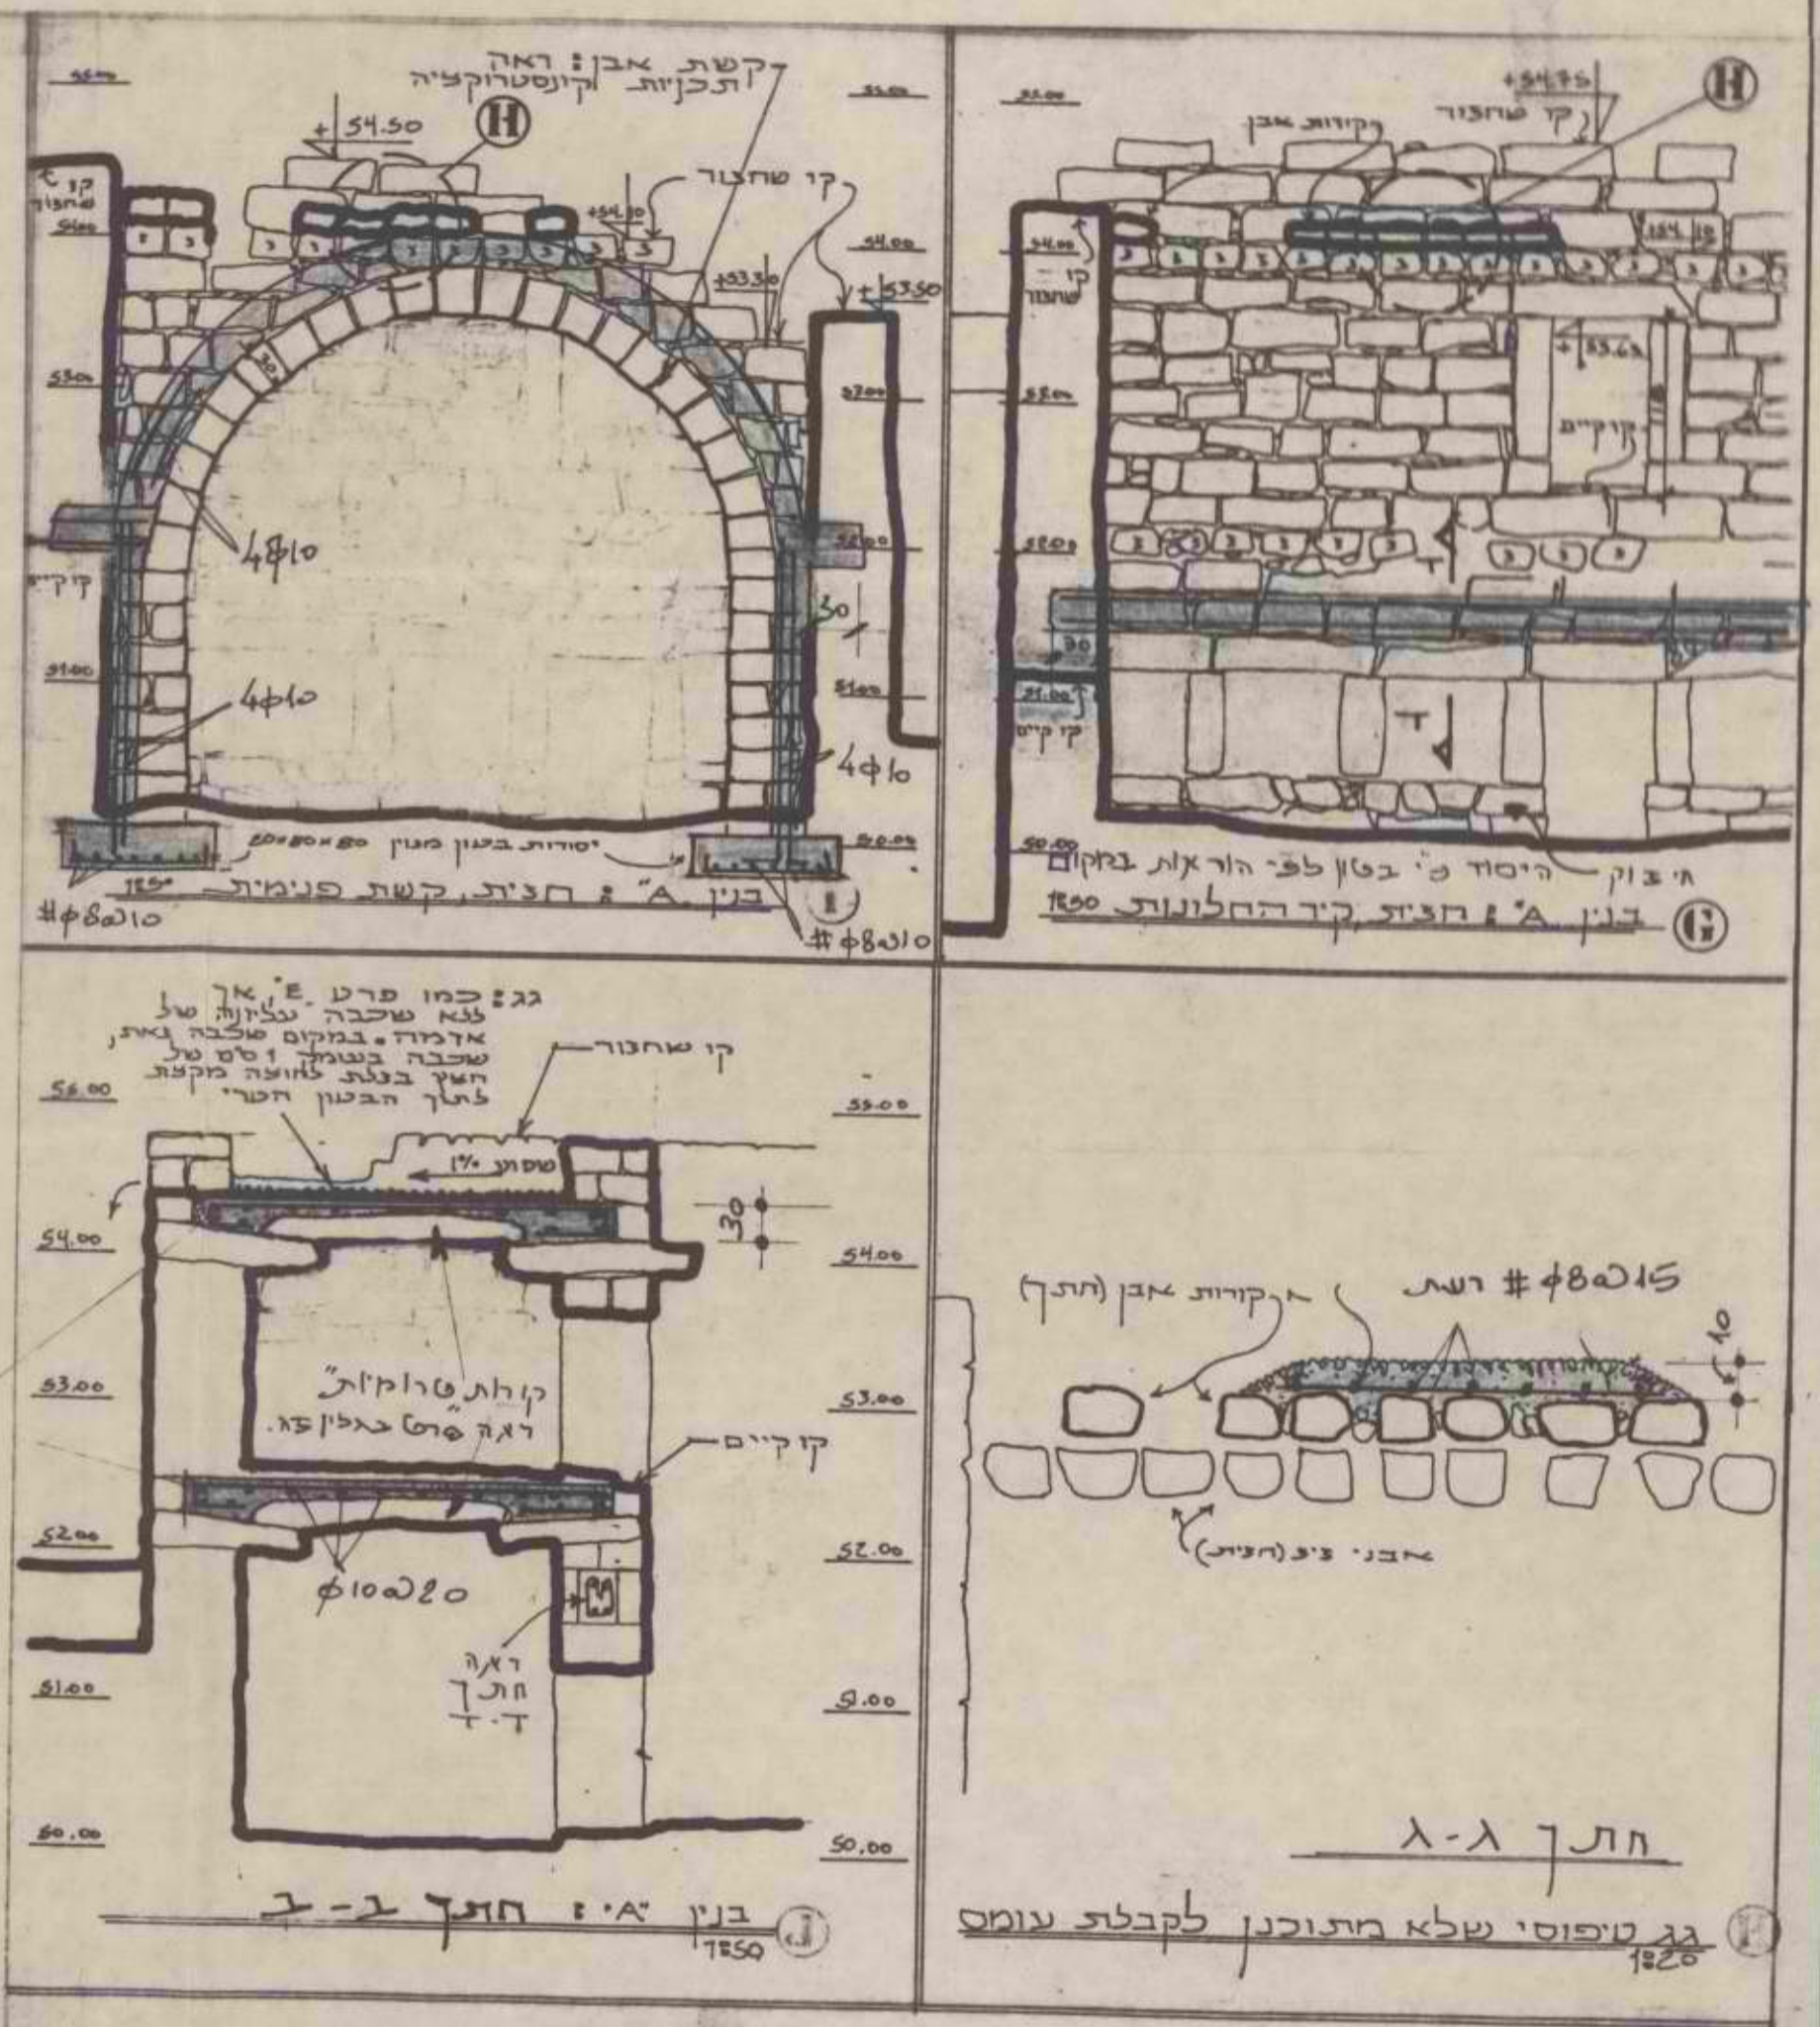 קשת אבן: ראה
תכניות קונסטרוקציה
55.00
55.00
+54.50
H
קו שחזור
קו
שחזור
54.00
+54.10
54.00
+53.30
+53.50
53.00
53.00
30
4φ10
52.00
קו קיים
30
51.00
51.00
4φ10
4φ10
50.00
יסודות בטון מזוין 20×80×80
בנין "A": חזית, קשת פנימית 1:50
I
#φ8@10
#φ8@10
55.00
+54.75
H
קו שחזור
קורות אבן
54.00
+54.10
קו
שחזור
+53.63
53.00
קו קיים
52.00
ד
30
51.00
קו קיים
ד
50.00
חיזוק היסוד ע"י בטון לפי הוראות במקום
בנין "A": חזית, קיר החלונות 1:50
G
גג: כמו פרט "E", אך
ללא שכבה עליונה של
אדמה. במקום שכבה זאת,
שכבה בעומק 1 ס"מ של
חצץ בזלת לחוצה מקצת
לתוך הבטון הטרי
קו שחזור
55.00
55.00
שפוע 1%
30
54.00
54.00
קורות "טרומיות"
ראה פרט בגליון
53.00
53.00
קו קיים
52.00
52.00
φ10@20
ראה
חתך
ד-ד
51.00
51.00
50.00
50.00
בנין "A": חתך ב-ב
1:50
J
קורות אבן (חתך)
רשת #φ8@15
10
אבני זיז (חזית)
חתך ג-ג
גג טיפוסי שלא מתוכנן לקבלת עומס
1:20